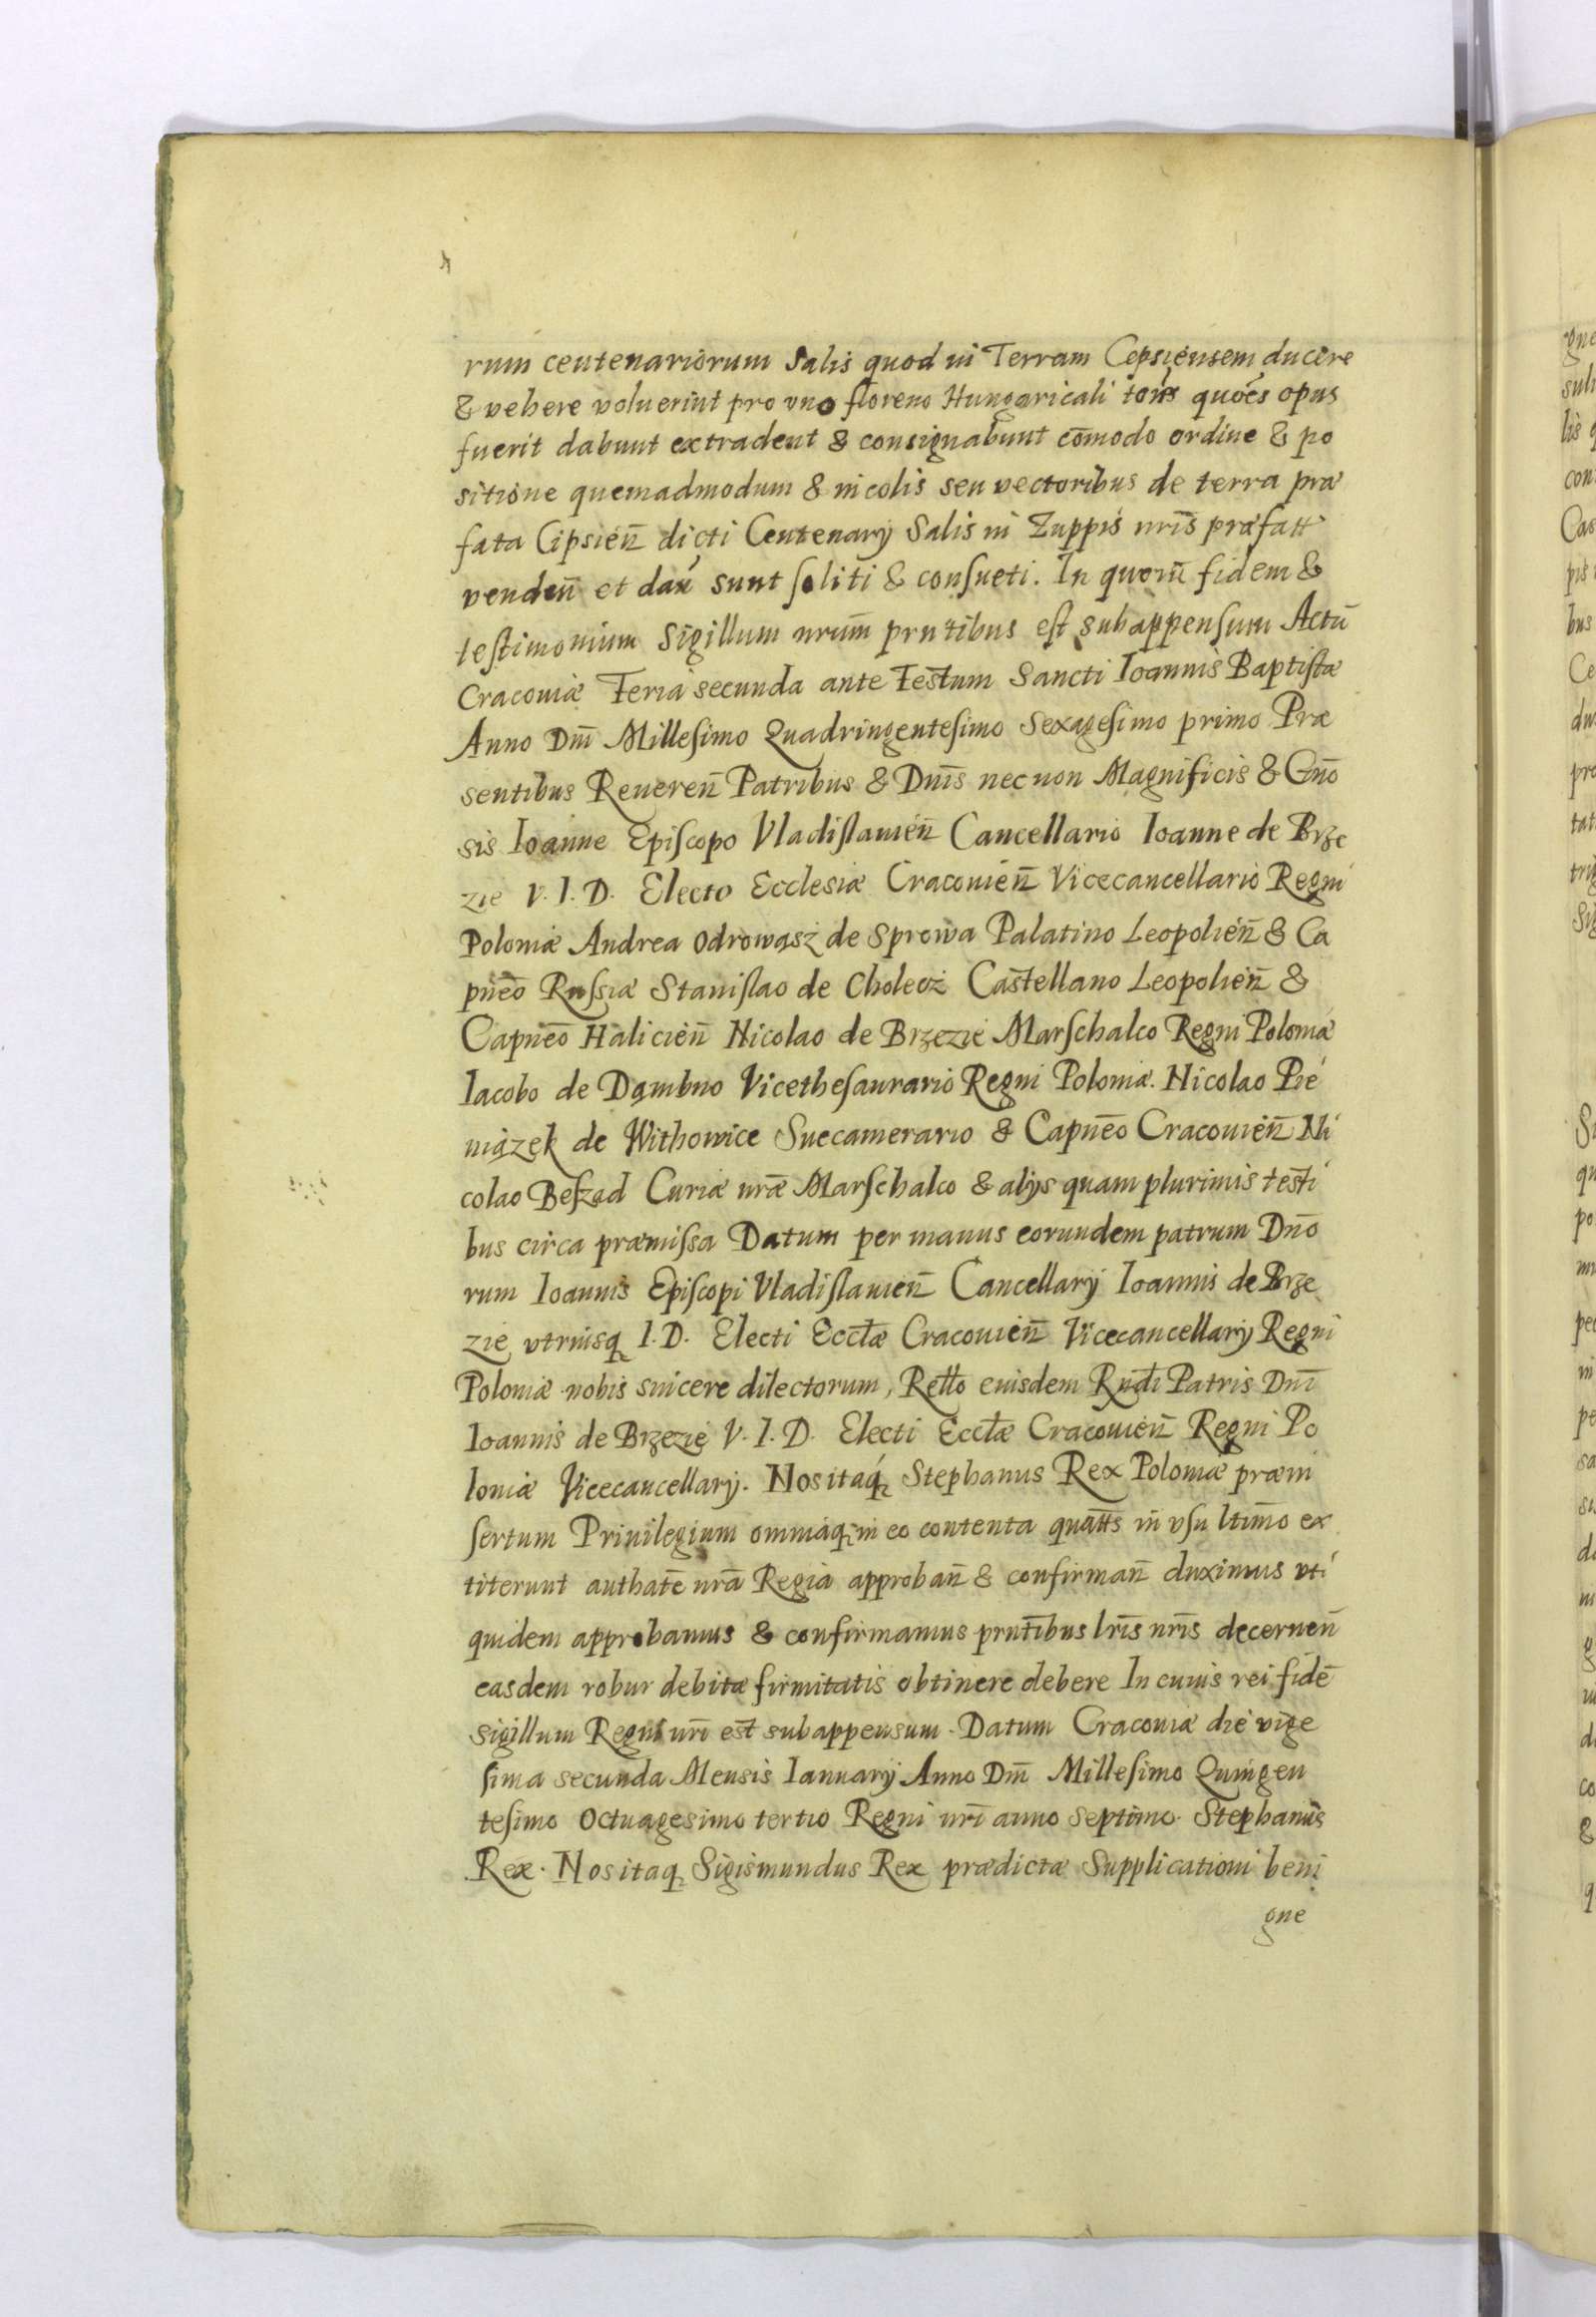 rum centenariorum Salis quod in Terram Cepsiensem ducere
& vehere voluerint pro vno floreno Hungaricali toūs quoēs opus
fuerit dabunt extradent & consignabunt cōmodo ordine & po
sitione quemadmodum & incolis seu vectoribus de terra præ
fata Cipsien̄ dicti Centenarÿ Salis in Zuppis nr̄is præfatt
venden̄ et dan̄ sunt ſoliti & conſueti. In quorū fidem &
teſtimonium Sigillum nrūm prntibus eſt subappenſum Actū
Cracouiæ Feria secunda ante Festum Sancti Ioannis Baptiſtæ
Anno Dn̄i Milleſimo Quadringenteſimo Sexageſimo primo Præ
sentibus Reueren̄ Patribus & Dnīs nec non Magnificis & Gn̄o
sis Ioanne Epiſcopo Vladiſlauien̄ Cancellario Ioanne de Brze
zie V. I. D. Electo Ecclesiæ Cracouien̄ Vicecancellario Regni
Poloniæ Andrea Odrowąsz de Sprowa Palatino Leopolien̄ & Ca
pnēo Ruſsiæ Staniſlao de Cholecz Castellano Leopolien̄ &
Capnēo Halicien̄ Nicolao de Brzezie Marſchalco Regni Poloniæ
Iacobo de Dąmbno Vicetheſaurario Regni Poloniæ. Nicolao Pie
niązek de Withowice Succamerario & Capnēo Cracouien̄ Ni
colao Beſzad Curiæ nrǣ Marſchalco & alÿs quam plurimis testi
bus circa præmiſsa Datum per manus eorundem patrum Dnō
rum Ioannis Epiſcopi Vladiſlauien̄ Cancellarÿ Ioannis de Brze
zie vtriusq̨ I. D. Electi Eccłæ Cracouien̄ Vicecancellarÿ Regni
Poloniæ nobis sincere dilectorum, Rełło eiusdem Rn̄di Patris Dnī
Ioannis de Brzezie V. I. D. Electi Eccłæ Cracouien̄ Regni Po
loniæ Vicecancellarÿ. Nos itaq̨ Stephanus Rex Poloniæ præin
ſertum Priuilegium omniaq̨ in eo contenta quātts in vſu ltīmo ex
titerunt authatē nrā Regia approban̄ & confirman̄ duximus vti
quidem approbamus & confirmamus prntībus lrīs nrīs decernen̄
easdem robur debitæ firmitatis obtinere debere In cuius rei fidē
sigillum Regni nrī est subappensum. Datum Cracouiæ die vige
ſima secunda Mensis Ianuarÿ Anno Dn̄i Milleſimo Quingen
teſimo Octuagesimo tertio Regni nrī anno septimo. Stephanus
Rex. Nos itaq̨ Sigismundus Rex prædictæ Supplicationi beni
gne